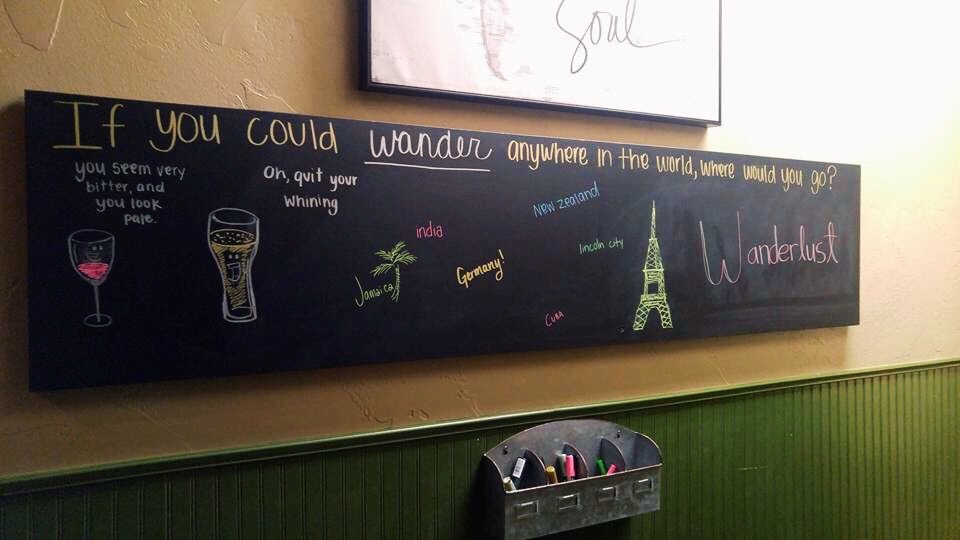 Soul
If you could wander anywhere in the world, where would you go?
you seem very
bitter, and
you look
pale.
Oh, quit your
whining
india
New Zealand
lincoln city
Jamaica
Germany!
Cuba
Wanderlust